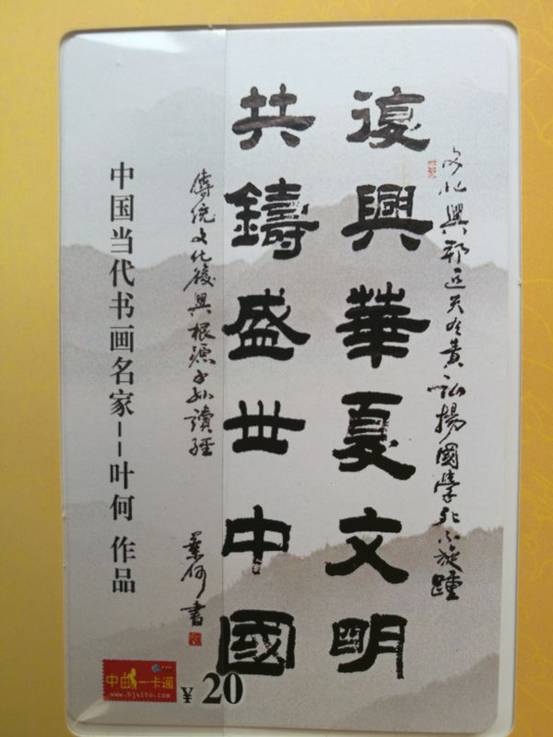 文化興邦匹夫有責弘揚國學死不旋踵
復興華夏文明
共鑄盛世中國
傳統文化復興根源子孫讀經
葉何書
中国当代书画名家--叶何 作品
一卡通
¥20